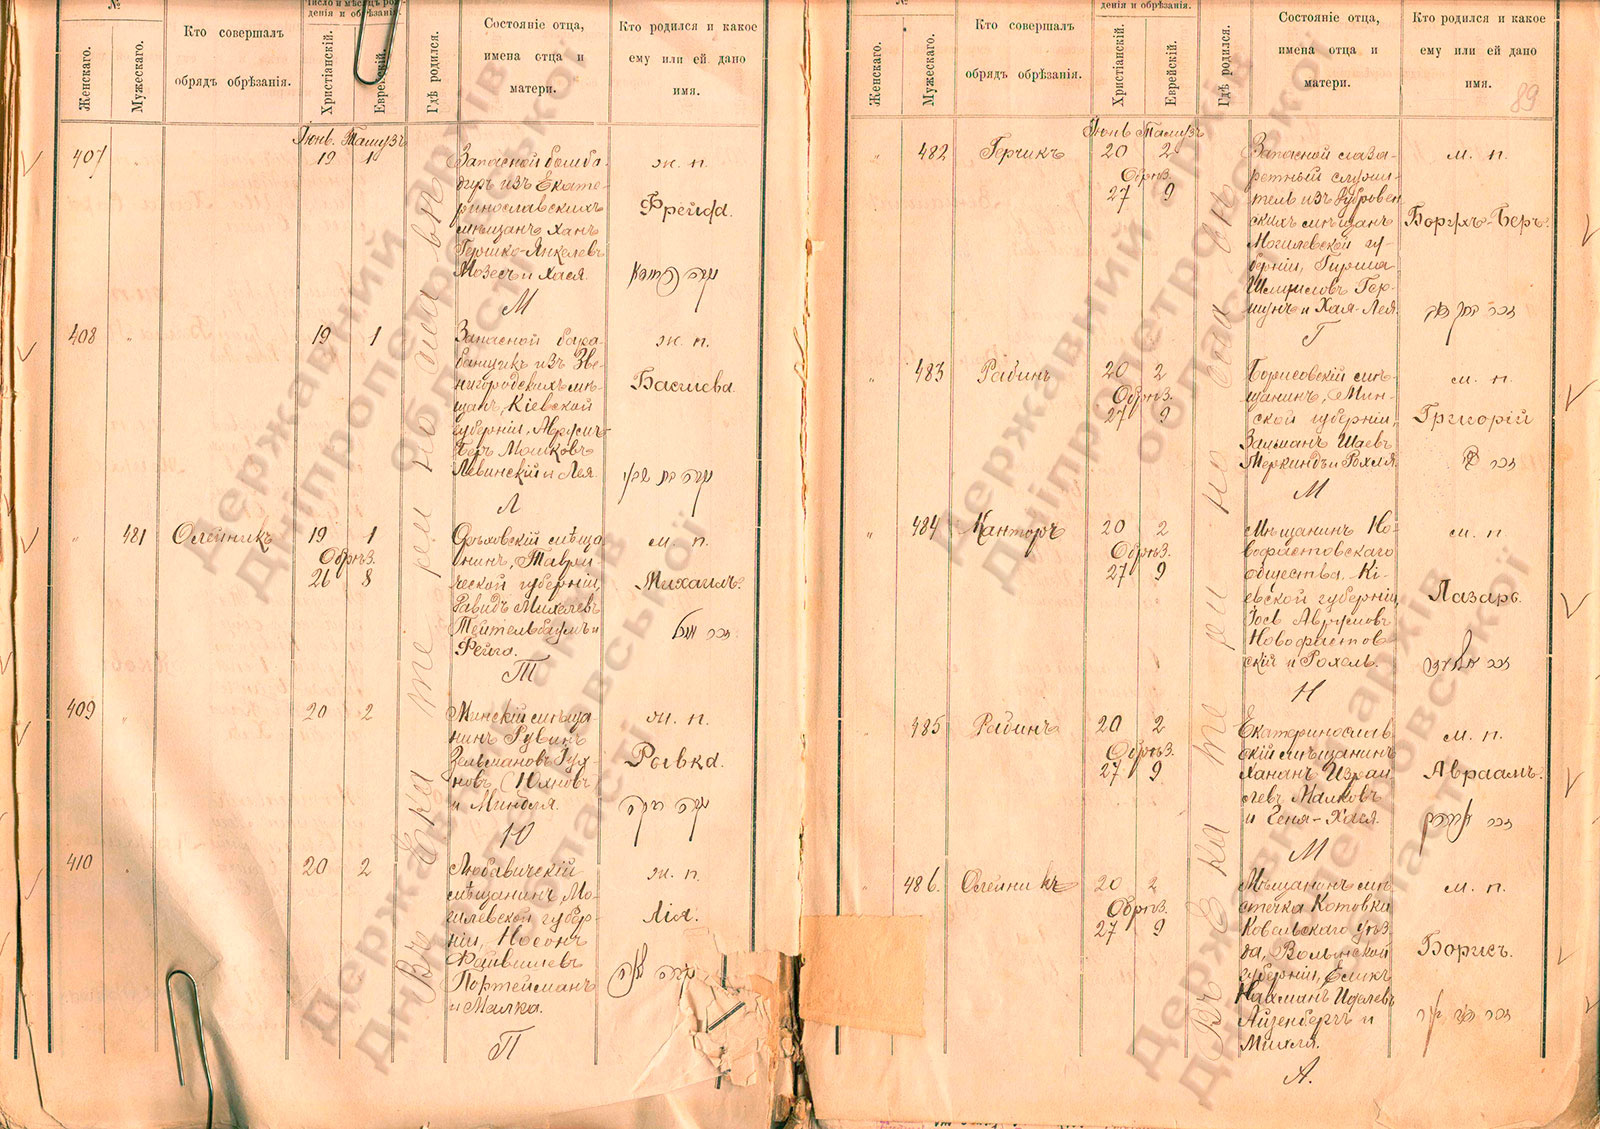 №
Женскаго.
Мужескаго.
Кто совершалъ
обрядъ обрѣзанія.
дѣнія и обрѣзанія.
Христіанскій.
Еврейскій.
Гдѣ родился.
Состояніе отца,
имена отца и
матери.
Кто родился и какое
ему или ей дано
имя.
Іюнь. Тамузъ
407
19 1
Запасной бомба-
диръ изъ Екате-
ринославскихъ
мѣщанъ Ханъ
Гершко-Янкелевъ
Мозесъ и Хася.
М
ж. п.
Фрейда.
408
19 1
Запасной бара-
банщикъ изъ Зве-
нигородскихъ мѣ-
щанъ, Кіевской
губерніи, Аврумъ-
Беръ Мошковъ
Левинскій и Лея.
Л
ж. п.
Басшева.
481
Олейникъ
19 1
Обрѣз.
26 8
Орѣховскій мѣща-
нинъ, Таври-
ческой губерніи,
Давидъ Михелевъ
Тейтельбаумъ и
Фейга.
Т
м. п.
Михаилъ.
409
20 2
Минскій мѣща-
нинъ Рувинъ
Зельмановъ Юх-
новъ (Юхновъ
и Миндля.
Ю
ж. п.
Рывка.
410
20 2
Любавичскій
мѣщанинъ, Мо-
гилевской губер-
ніи, Носонъ
Файвишевъ
Портейманъ
и Малка.
П
ж. п.
Лія.
Въ Екатеринославѣ
№
Женскаго.
Мужескаго.
Кто совершалъ
обрядъ обрѣзанія.
денія и обрѣзанія.
Христіанскій.
Еврейскій.
Гдѣ родился.
Состояніе отца,
имена отца и
матери.
Кто родился и какое
ему или ей дано
имя.
89
Іюнь Тамузъ
482
Герчикъ
20 2
Обрѣз.
27 9
Запасной слаза-
ретный служи-
тель изъ Дубровен
скихъ мѣщанъ
Могилевской гу-
берніи, Гирша
Шмуиловъ Гер-
шунъ и Хая-Лея.
Г
м. п.
Борухъ-Беръ.
483
Рабинъ
20 2
Обрѣз.
27 9
Борисовскій мѣ-
щанинъ, Мин-
ской губерніи,
Зальманъ Шаевъ
Меркиндъ и Рохля.
М
м. п.
Григорій
484
Канторъ
20 2
Обрѣз.
27 9
Мѣщанинъ Но-
вофастовскаго
общества, Кі-
евской губерніи,
Іось Аврумовъ
Новофастов
скій и Рохль.
Н
м. п.
Лазарь.
485
Рабинъ
20 2
Обрѣз.
27 9
Екатеринослав
скій мѣщанинъ
Хананъ Израи
левъ Малковъ
и Геня-Хася.
М
м. п.
Авраамъ.
486.
Олейникъ
20 2
Обрѣз.
27 9
Мѣщанинъ мѣ-
стечка Котовка
Ковельскаго уѣз-
да, Волынской
губерніи, Еликъ
Нахманъ Идалевъ
Айзенбергъ и
Михля.
А.
м. п.
Борисъ.
Въ Екатеринославѣ
Державний архів
Дніпропетровської
області